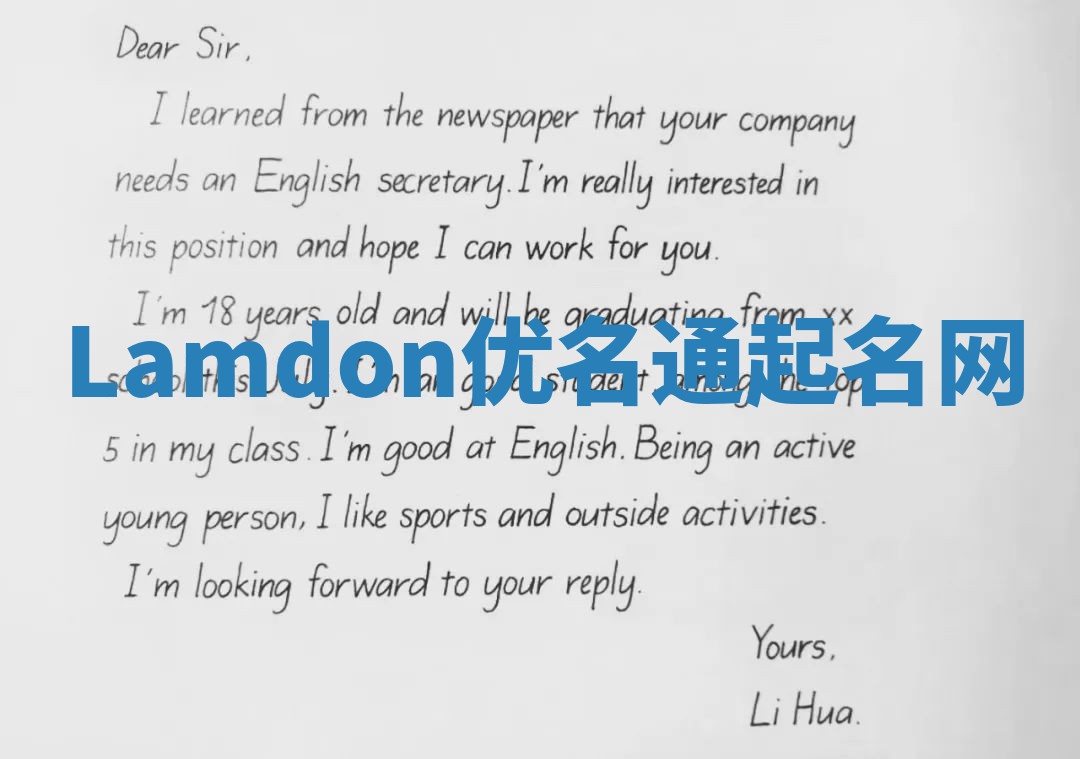 Dear Sir,
I learned from the newspaper that your company
needs an English secretary. I'm really interested in
this position and hope I can work for you.
I'm 18 years old and will be graduating from xx
Lamdon优名通起名网
school this July. I'm an good student, among the top
5 in my class. I'm good at English. Being an active
young person, I like sports and outside activities.
I'm looking forward to your reply.
Yours,
Li Hua.